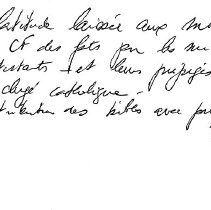 latitude laissée aux m
CF des faits par les mi
testants et leurs préjugés
clergé catholique -
tribution des bibles avec pr